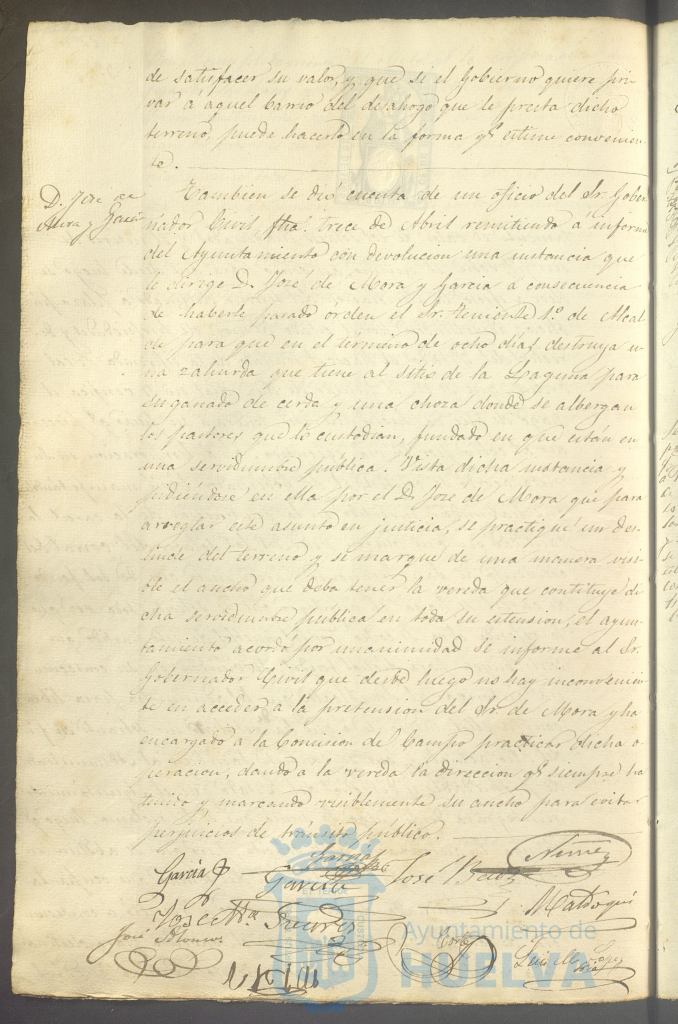 de satisfacer su valor, y que si el Gobierno quiere pri-
var á aquel barrio del desahogo que le presta dicho
terreno, puede hacerlo en la forma qe. estime convenien-
te.
D. José de
Mora y García
Tambien se dió cuenta de un oficio del Sr. Gober-
nador Civil, fha. trece de Abril remitiendo á informe
del Ayuntamiento con devolucion una instancia que
le dirige D. José de Mora y Garcia a consecuencia
de haberle pasado órden el Sr. Teniente 1º. de Alcal
de para que en el término de ocho dias destruya u-
na zahurda que tiene al sitio de la Laguna para
su ganado de cerda y una choza donde se albergan
los pastores que lo custodian, fundado en que están en
una servidumbre pública. Vista dicha instancia y
pidiéndose en ella por el D. Jose de Mora que para
arreglar este asunto en justicia, se practique un des-
linde del terreno y se marque de una manera visi-
ble el ancho que deba tener la vereda que contituye di-
cha servidumbre pública en toda su estension, el ayun-
tamiento acordó por unanimidad se informe al Sr.
Gobernador Civil que desde luego no hay inconvenien-
te en acceder a la pretension del Sr. de Mora y ha
encargado a la Comision de Campo practicar dicha o-
peracion, dando a la vereda la direccion qe. siempre ha
tenido y marcando visiblemente su ancho para evitar
perjuicios de tránsito público.
Garcia P
Garcia
José
Jose Ma
José
Mora
Ayuntamiento de
HUELVA